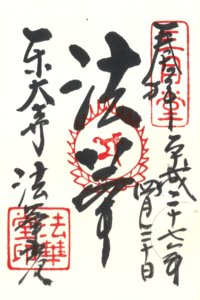 奉拝
平成二十六年
四月三十日
法華
東大寺
法華堂
法華
堂印